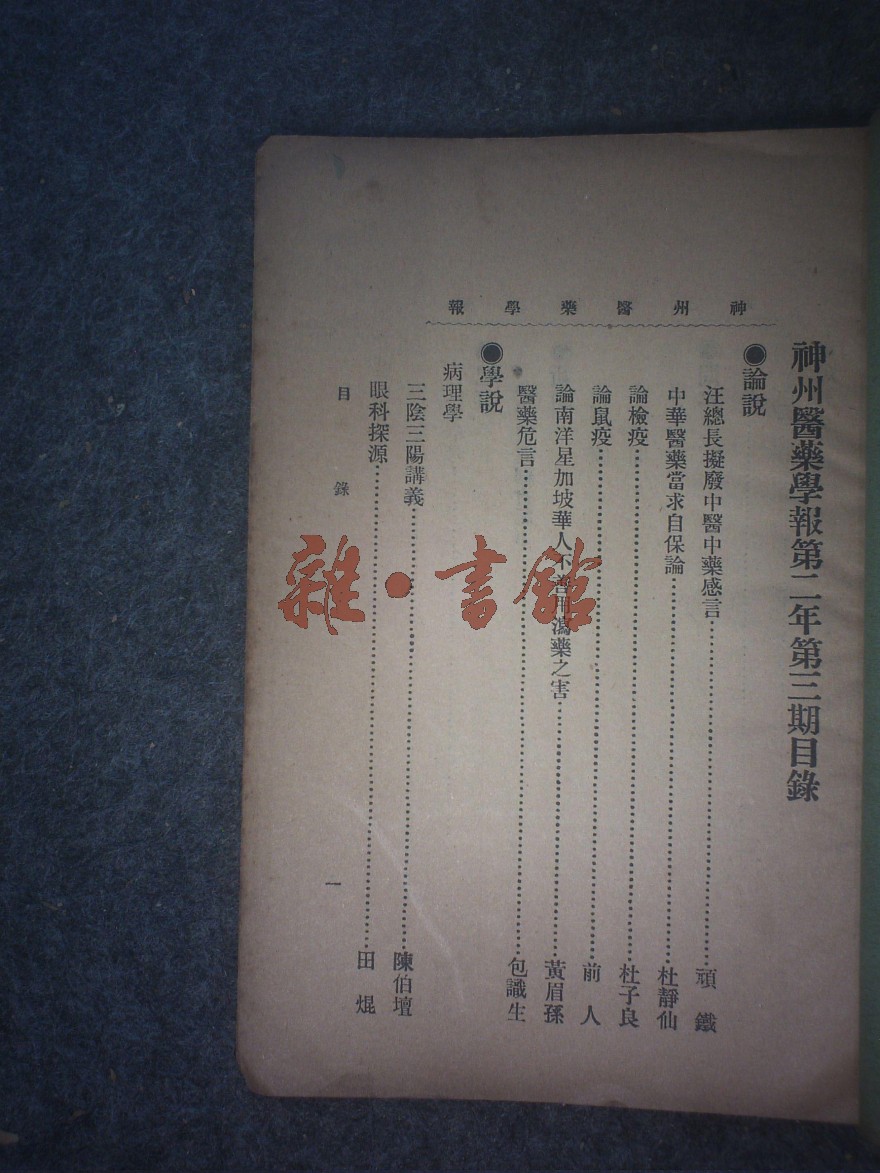 神州醫藥學報
神州醫藥學報第二年第三期目錄
●論説
汪總長擬廢中醫中藥感言……頑 鐵
中華醫藥當求自保論……杜靜仙
論檢疫……杜子良
論鼠疫……前 人
論南洋星加坡華人不善用瀉藥之害……黃眉孫
醫藥危言……包識生
●學説
病理學
三陰三陽講義……陳伯壇
眼科探源……田 焜
目錄 一
雜·書館